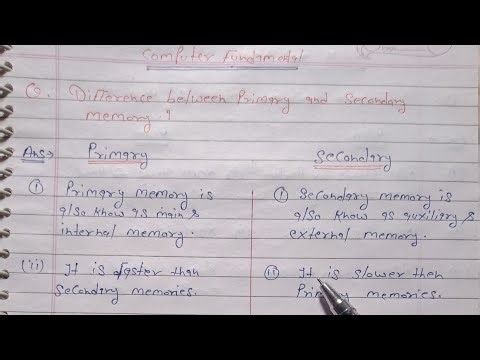 Computer Fundamental
Q. Difference between Primary and Secondary
memory ?
Ans→ Primary Secondary
(i) Primary memory is
also know as main &
internal memory.
(i) Secondary memory is
also know as auxiliary &
external memory.
(ii) It is faster than
Secondary memories.
(ii) It is slower then
Primary memories.